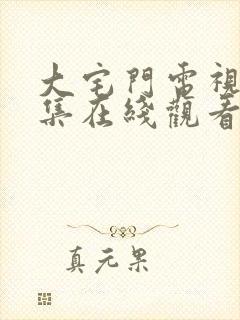 大宅門電視
集在綫觀看
真元果